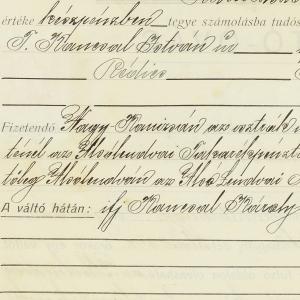 értéke készpénzben tegye számolásba tudós
T. Kancsal István úr
Rédics
Fizetendő Nagy-Kanizsán az osztrák
ténél az Alsólendvai Takarékpénzt
tőleg Alsólendván az Alsó Lendvai
A váltó hátán: ifj Kancsal Károly